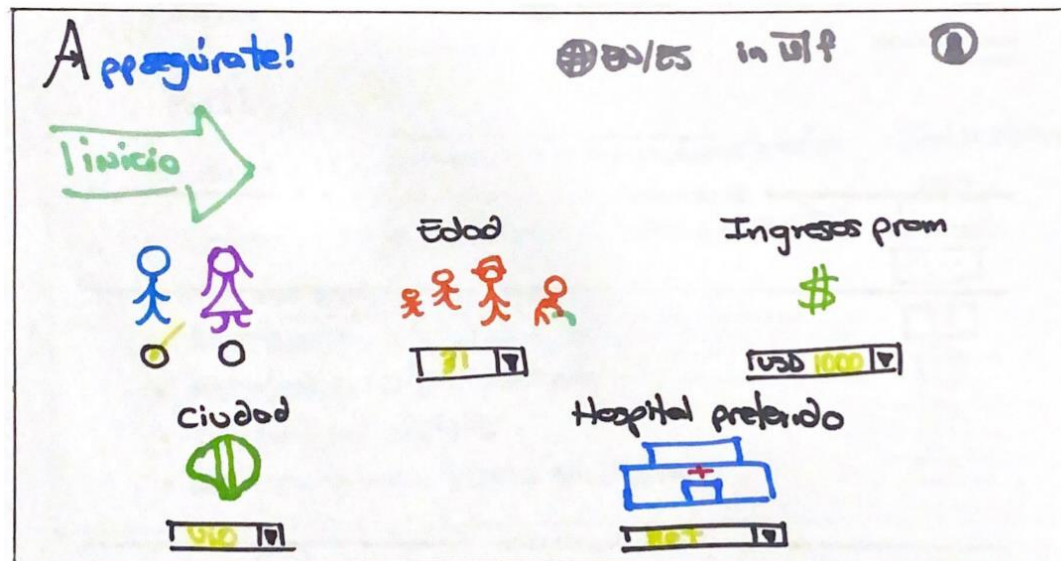 Appsegúrate!
EN/ES in f
inicio
Edad
Ingresos prom
$
31
USD 1000
Ciudad
Hospital preferido
UIO